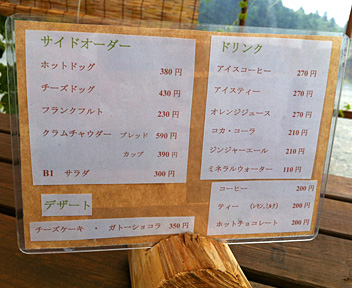 サイドオーダー
ホットドッグ 380円
チーズドッグ 430円
フランクフルト 230円
クラムチャウダー ブレッド 590円
カップ 390円
B1 サラダ 300円
デザート
チーズケーキ ・ ガトーショコラ 350円
ドリンク
アイスコーヒー 270円
アイスティー 270円
オレンジジュース 270円
コカ・コーラ 210円
ジンジャーエール 210円
ミネラルウォーター 110円
コーヒー 200円
ティー (レモン,ミルク) 200円
ホットチョコレート 200円